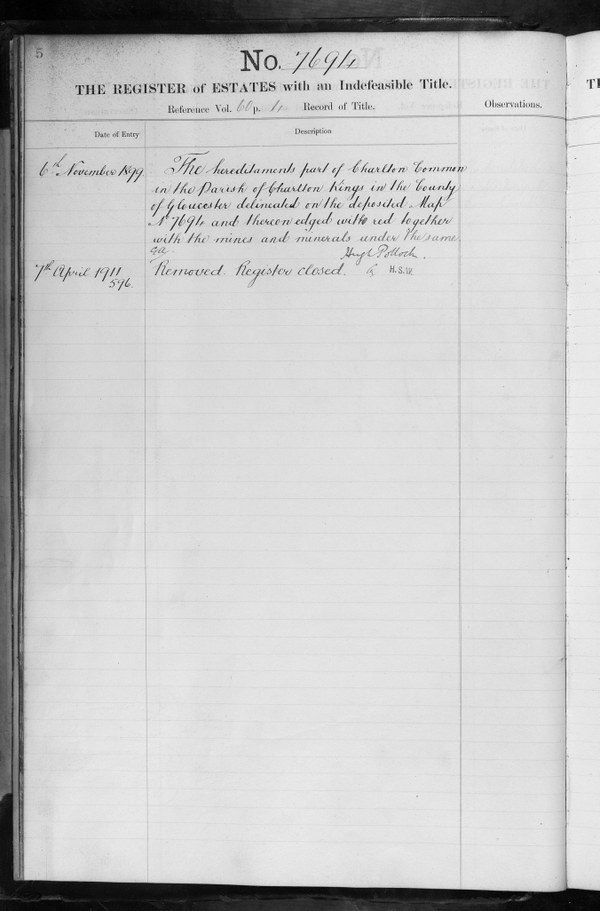 5
No. 7694
THE REGISTER of ESTATES with an Indefeasible Title.
Reference Vol. 60 p. Record of Title.
Observations.
Date of Entry
Description
6th November 1899
The hereditaments part of Charlton Common
in the Parish of Charlton Kings in the County
of Gloucester delineated on the deposited Map
No 7694 and thereon edged with red together
with the mines and minerals under the same.
Hugh Pollock.
7th April 1911
596.
Removed. Register closed. H.S.W.